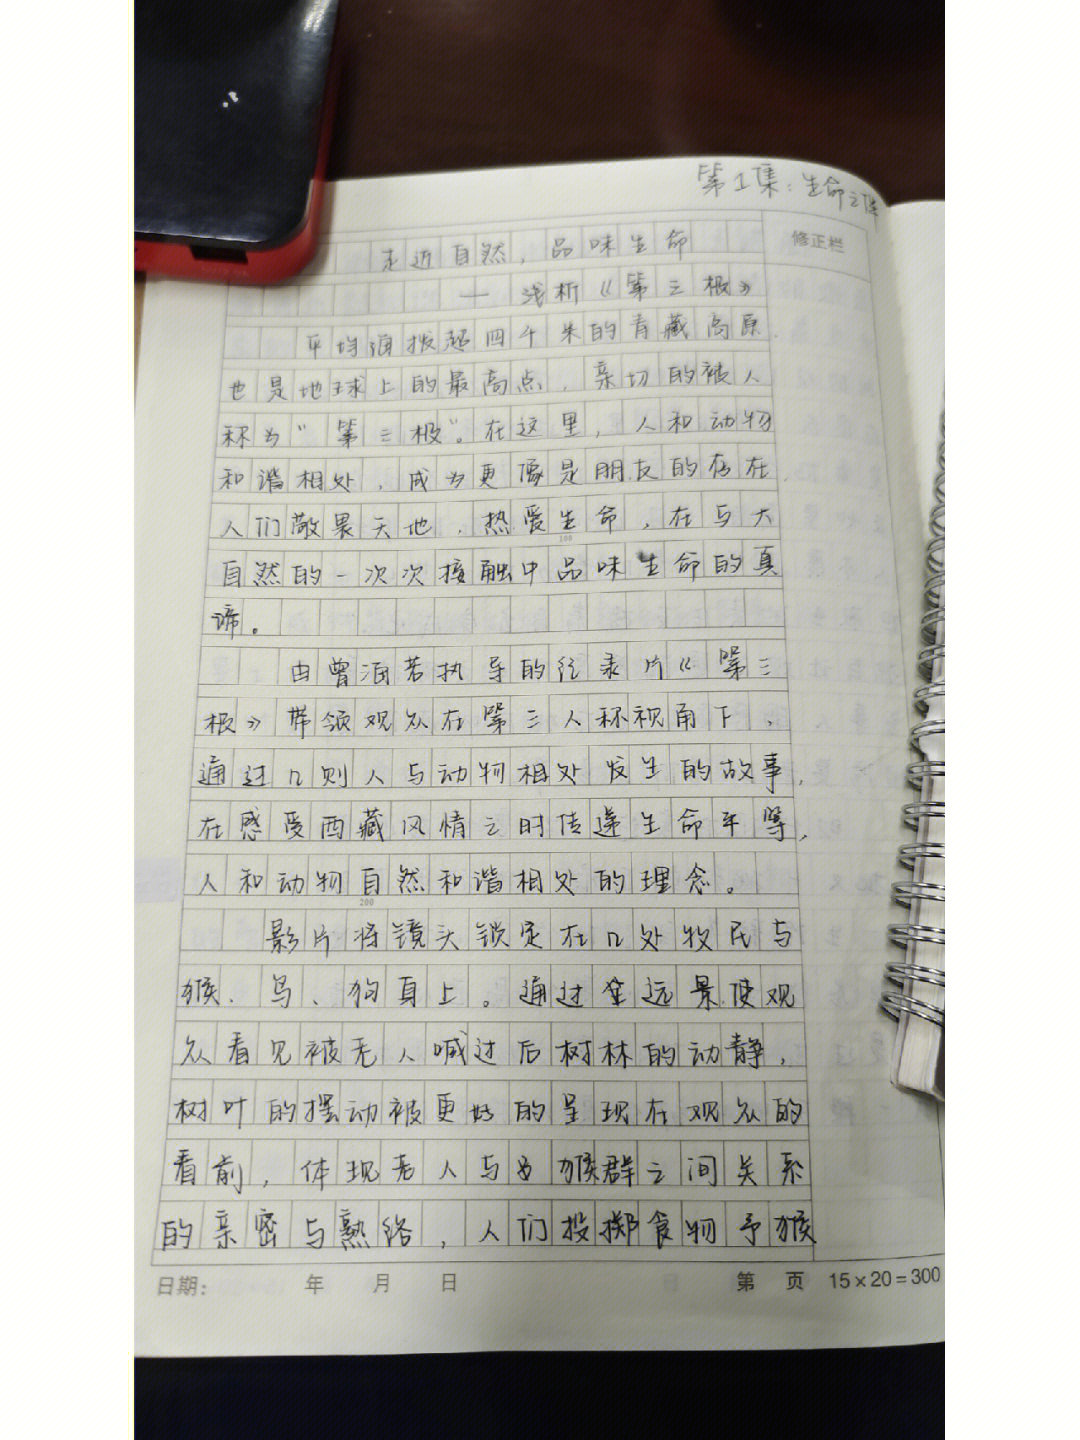 第1集：生命之
修正栏
走近自然，品味生命
— 浅析《第三极》
平均海拨超四千米的青藏高原，
也是地球上的最高点，亲切的被人
称为“第三极”。在这里，人和动物
和谐相处，成为更像是朋友的存在，
人们敬畏天地，热爱生命，在与大
100
自然的一次次接触中品味生命的真
谛。
由曾海若执导的纪录片《第三
极》带领观众在第三人称视角下，
通过几则人与动物相处发生的故事，
在感受西藏风情之时传递生命平等，
人和动物自然和谐相处的理念。
200
影片将镜头锁定在几处牧民与
猴、鸟、狗身上。通过全远景使观
众看见被老人喊过后树林的动静，
树叶的摆动被更好的呈现在观众的
看前，体现老人与猴群之间关系
的亲密与熟络，人们投掷食物予猴
日期： 年 月 日 第 页 15×20=300